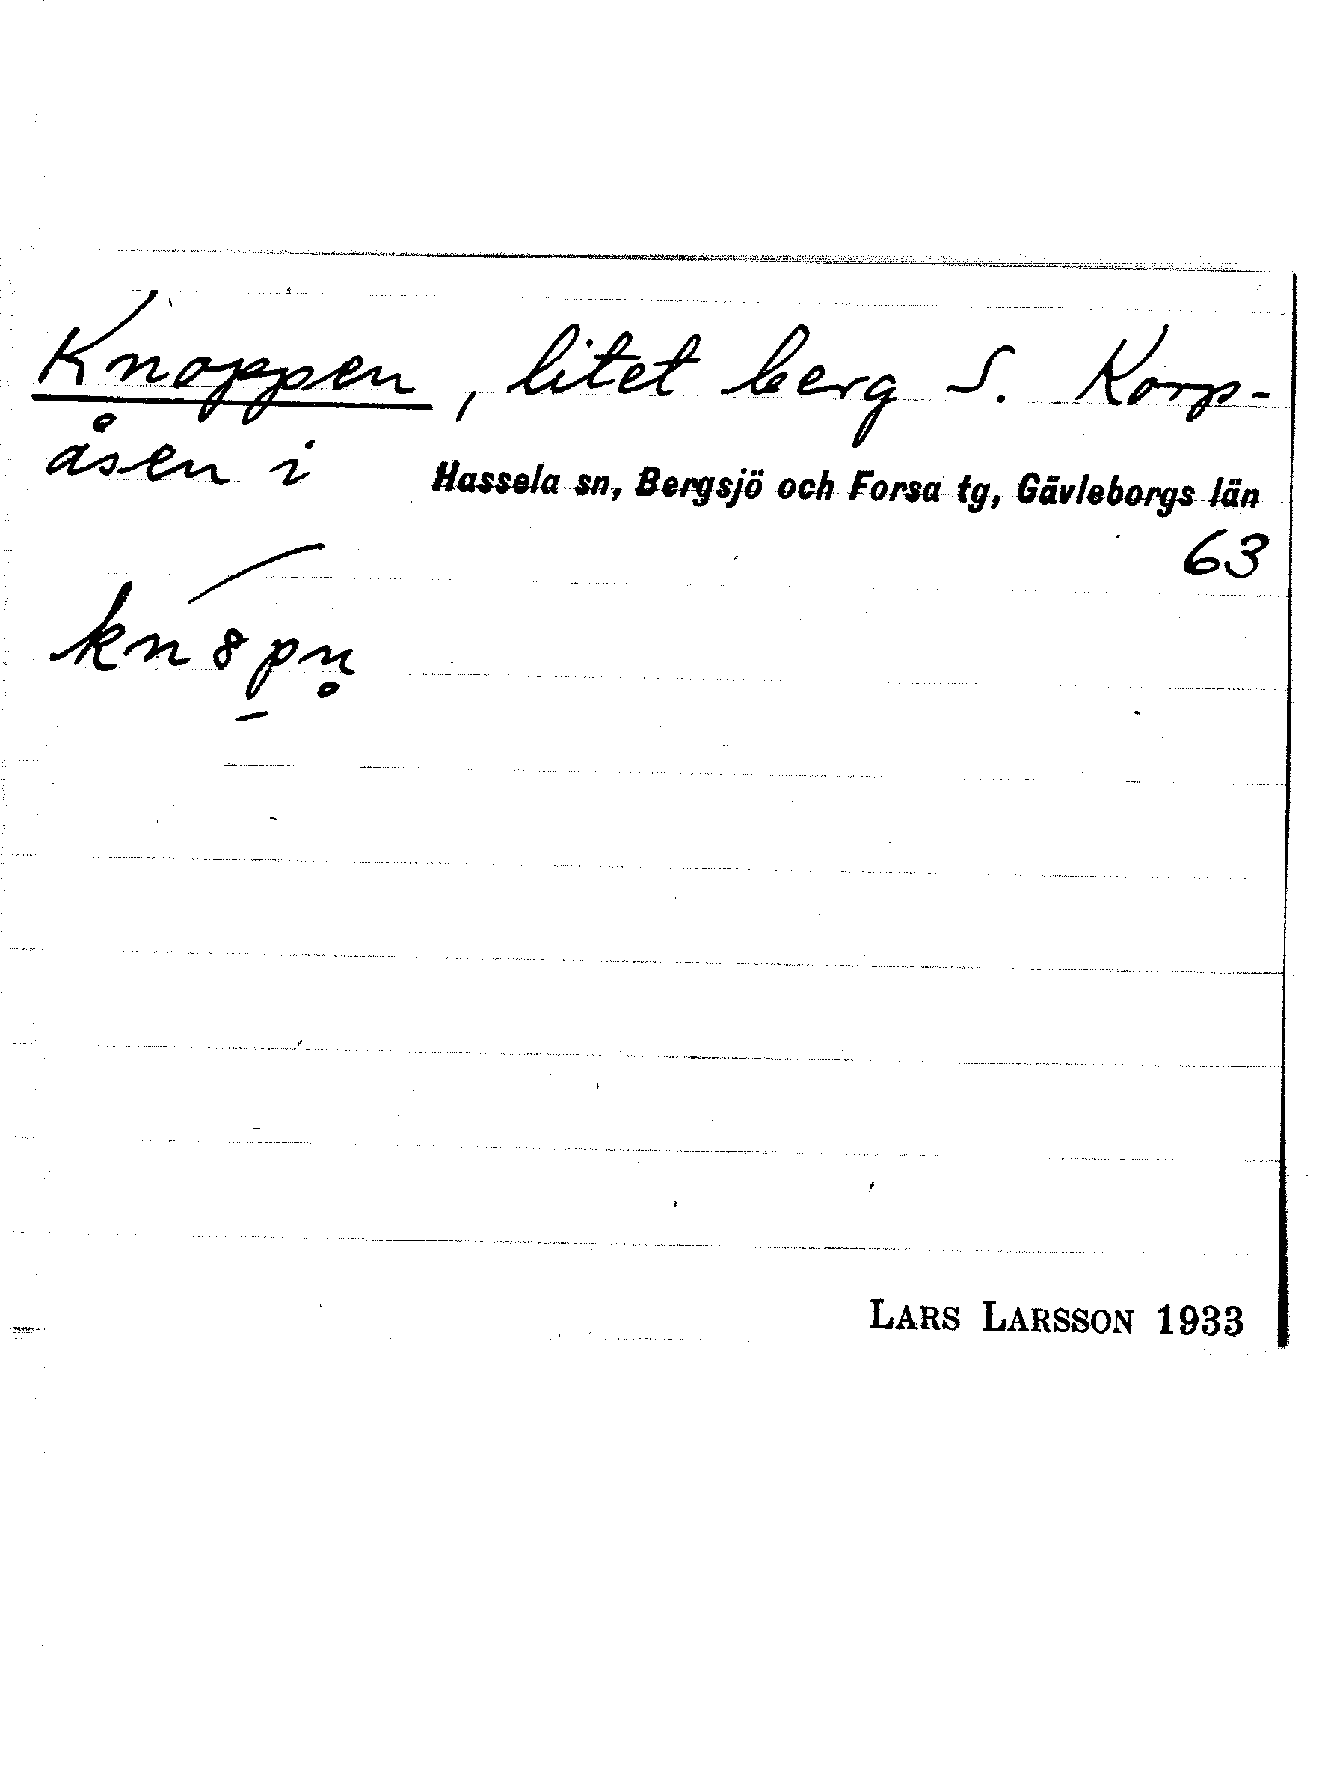 Knoppen, litet berg S. Korp-
åsen i Hassela sn, Bergsjö och Forsa tg, Gävleborgs län
63
kn8pn̥
LARS LARSSON 1933